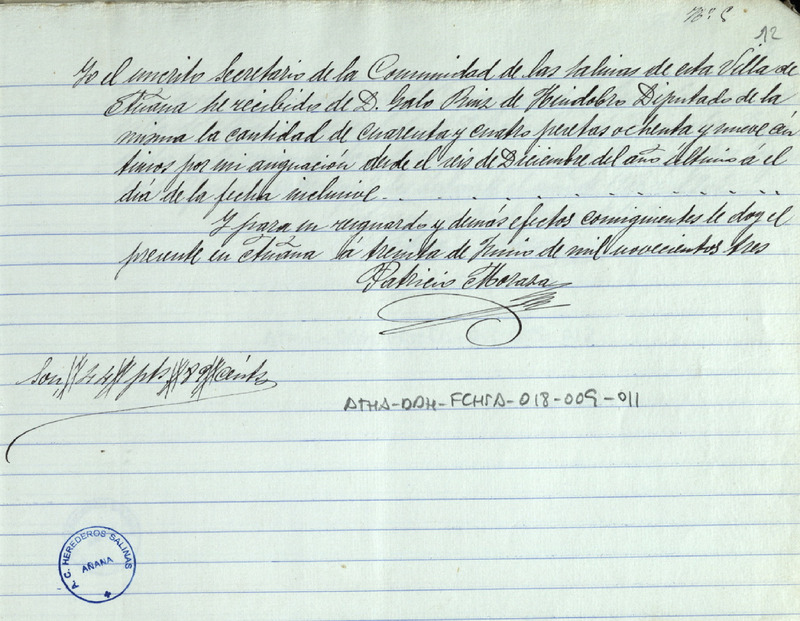 Nº 5
12
Yo el inscrito Secretario de la Comunidad de las salinas de esta Villa de
Añana he recibido de D. Galo Ruiz de Huidobro Diputado de la
misma la cantidad de cuarenta y cuatro pesetas ochenta y nueve cén
timos por mi asignación desde el seis de Diciembre del año último á el
día de la fecha inclusive. . . . . . . . . .
Y para su resguardo y demás efectos consiguientes le doy el
presente en Añana á treinta de Junio de mil novecientos tres
Patricio
Son // 44 // pts // 89 // cénts
ATHA-DAH-FCHSA-018-009-011
P. C. HEREDEROS SALINAS
AÑANA